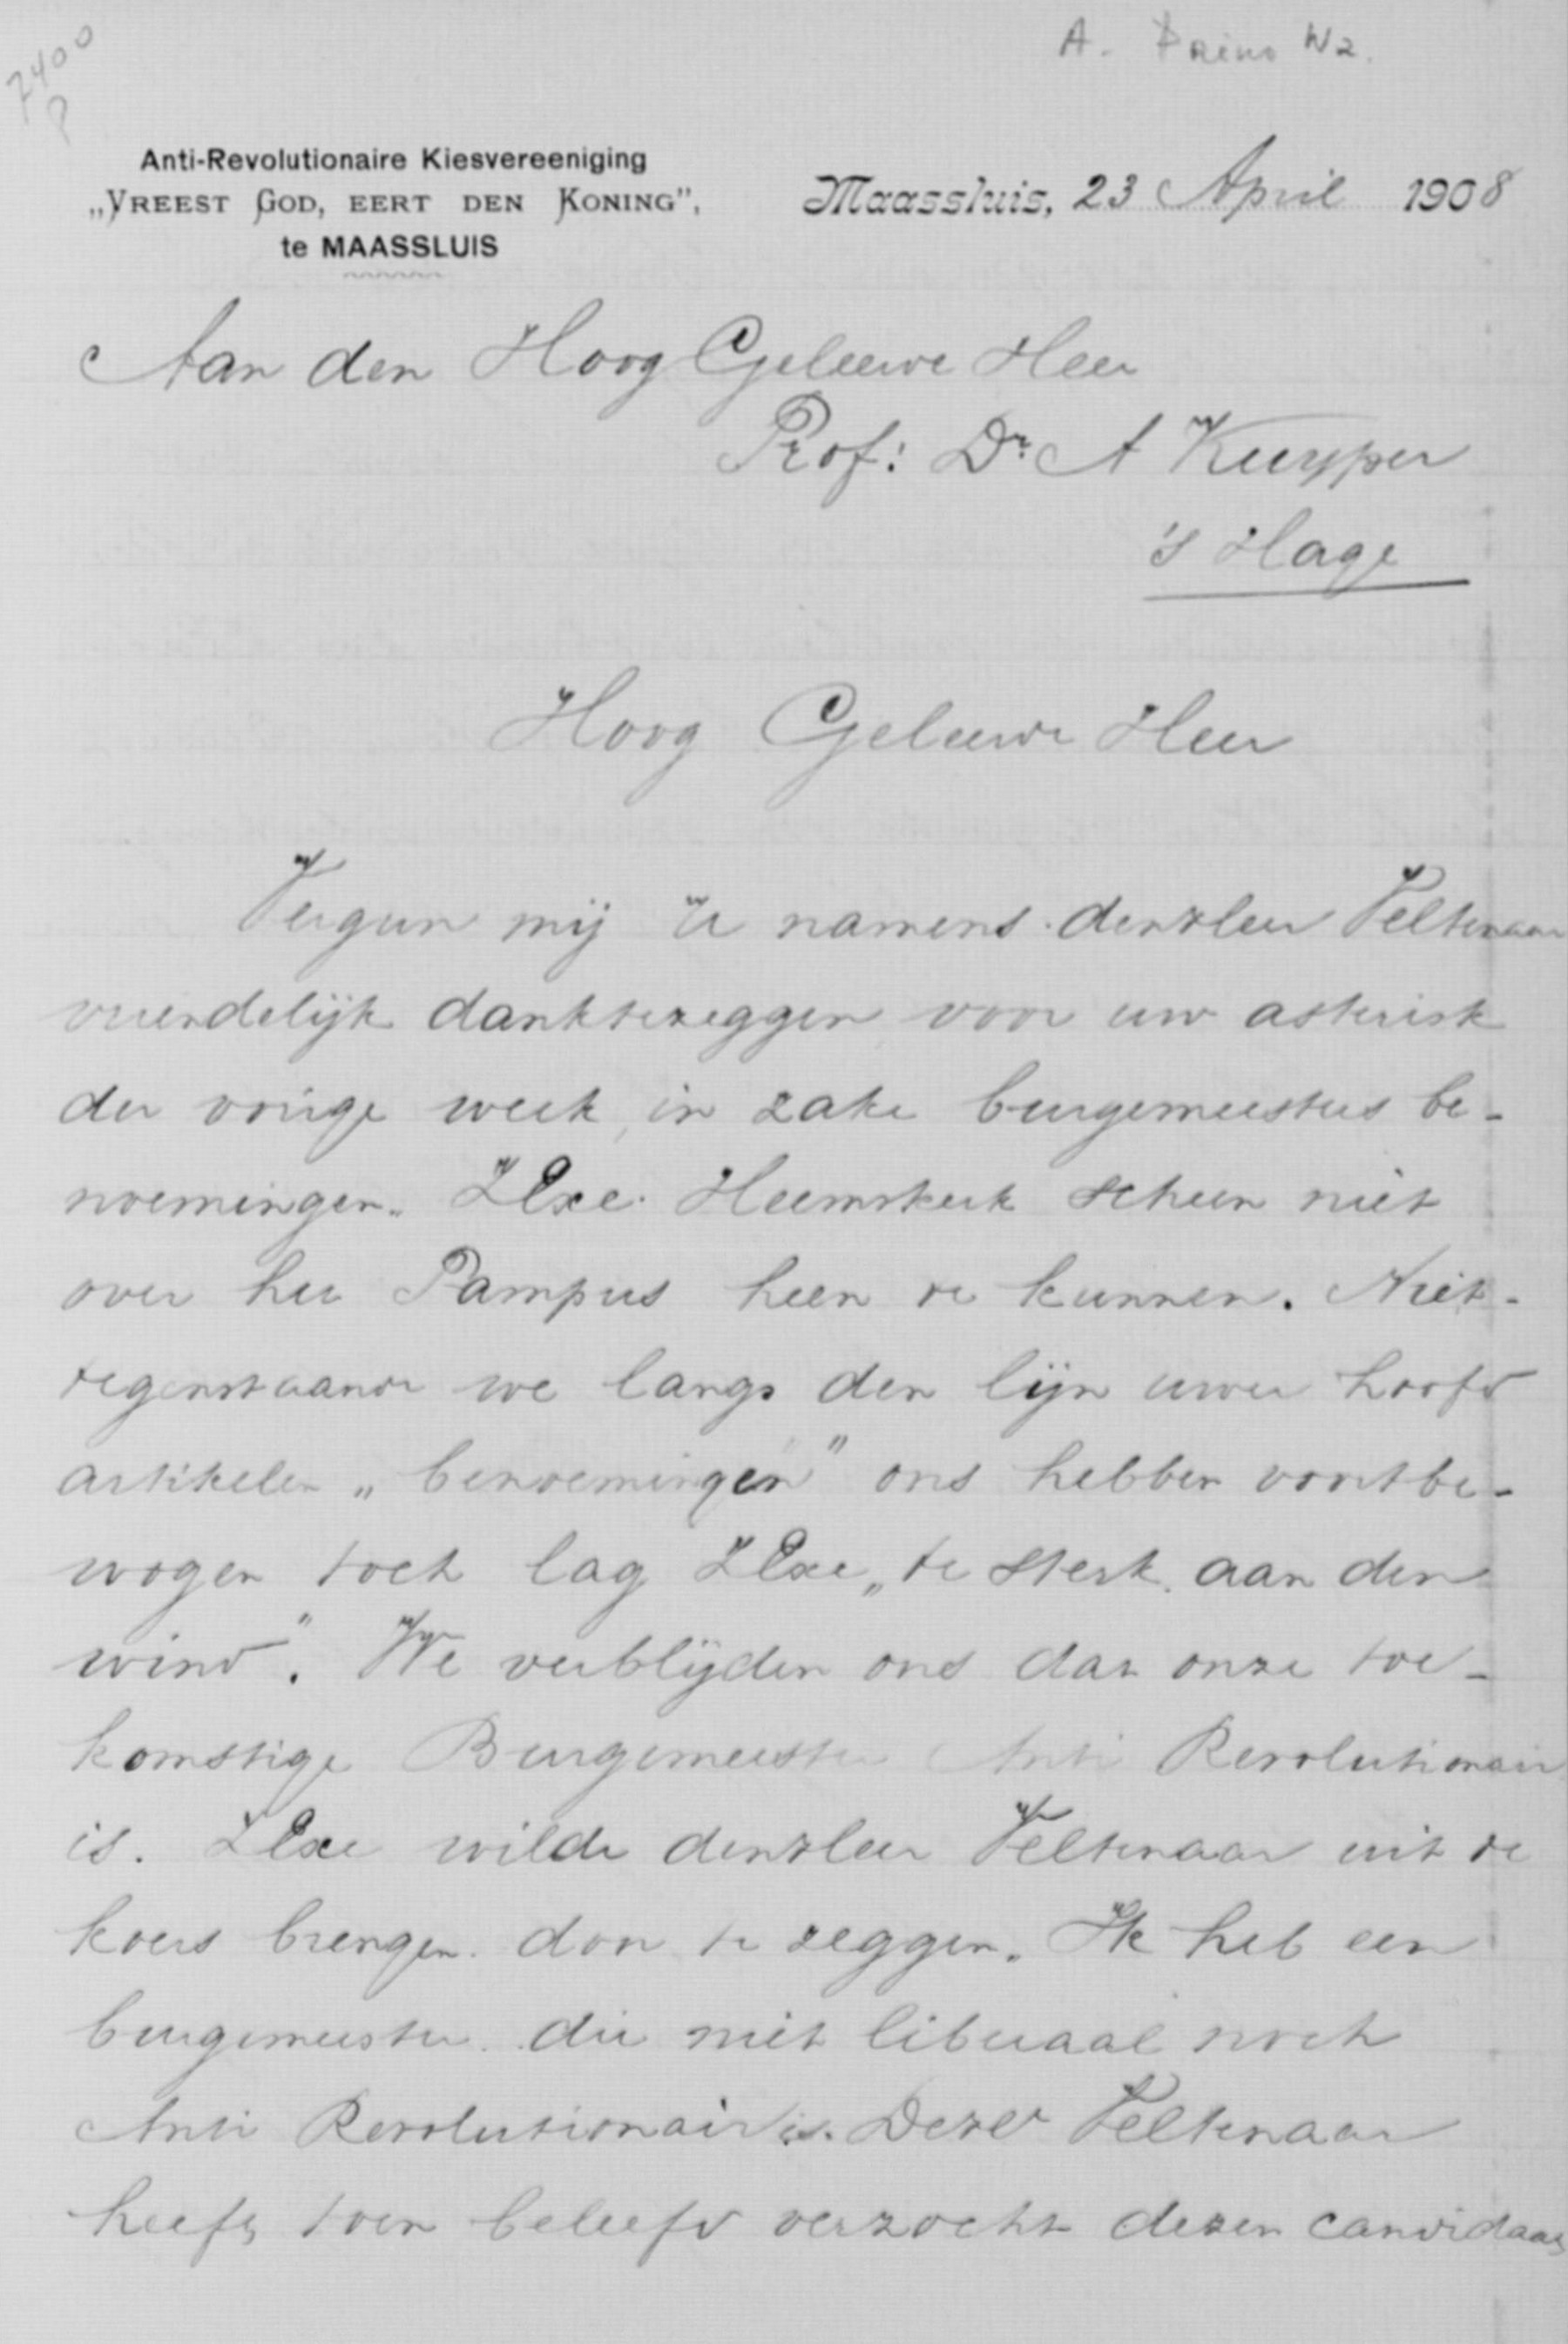 7400
A. Prins Wz.
Anti-Revolutionaire Kiesvereeniging
„VREEST GOD, EERT DEN KONING”,
te MAASSLUIS
Maassluis, 23 April 1908
Aan den Hoog Geleerde Heer
Prof: Dr. A Kuyper
's Hage
Hoog Geleerde Heer
Vergun mij U namens den Weleer Veltenaar
vriendelijk danktezeggen voor uw asterisk
der vorige week, in zake burgemeesters be-
noemingen. ZExe. Heemskerk scheen niet
over het Pampus heen te kunnen. Niet-
tegenstaande we langs den lijn uwer hoofd
artikelen „benoemingen” ons hebben voortbe-
wogen toch lag ZExe „te sterk aan den
wind”. We verblijden ons dat onze toe-
komstige Burgemeester Anti Revolutionair
is. ZExe wilde den Weleer Veltenaar uit de
koers brengen door te zeggen. Ik heb een
burgemeester die niet liberaal noch
Anti Revolutionair is. Veltenaar
heeft toen beleefd verzocht dezen candidaat